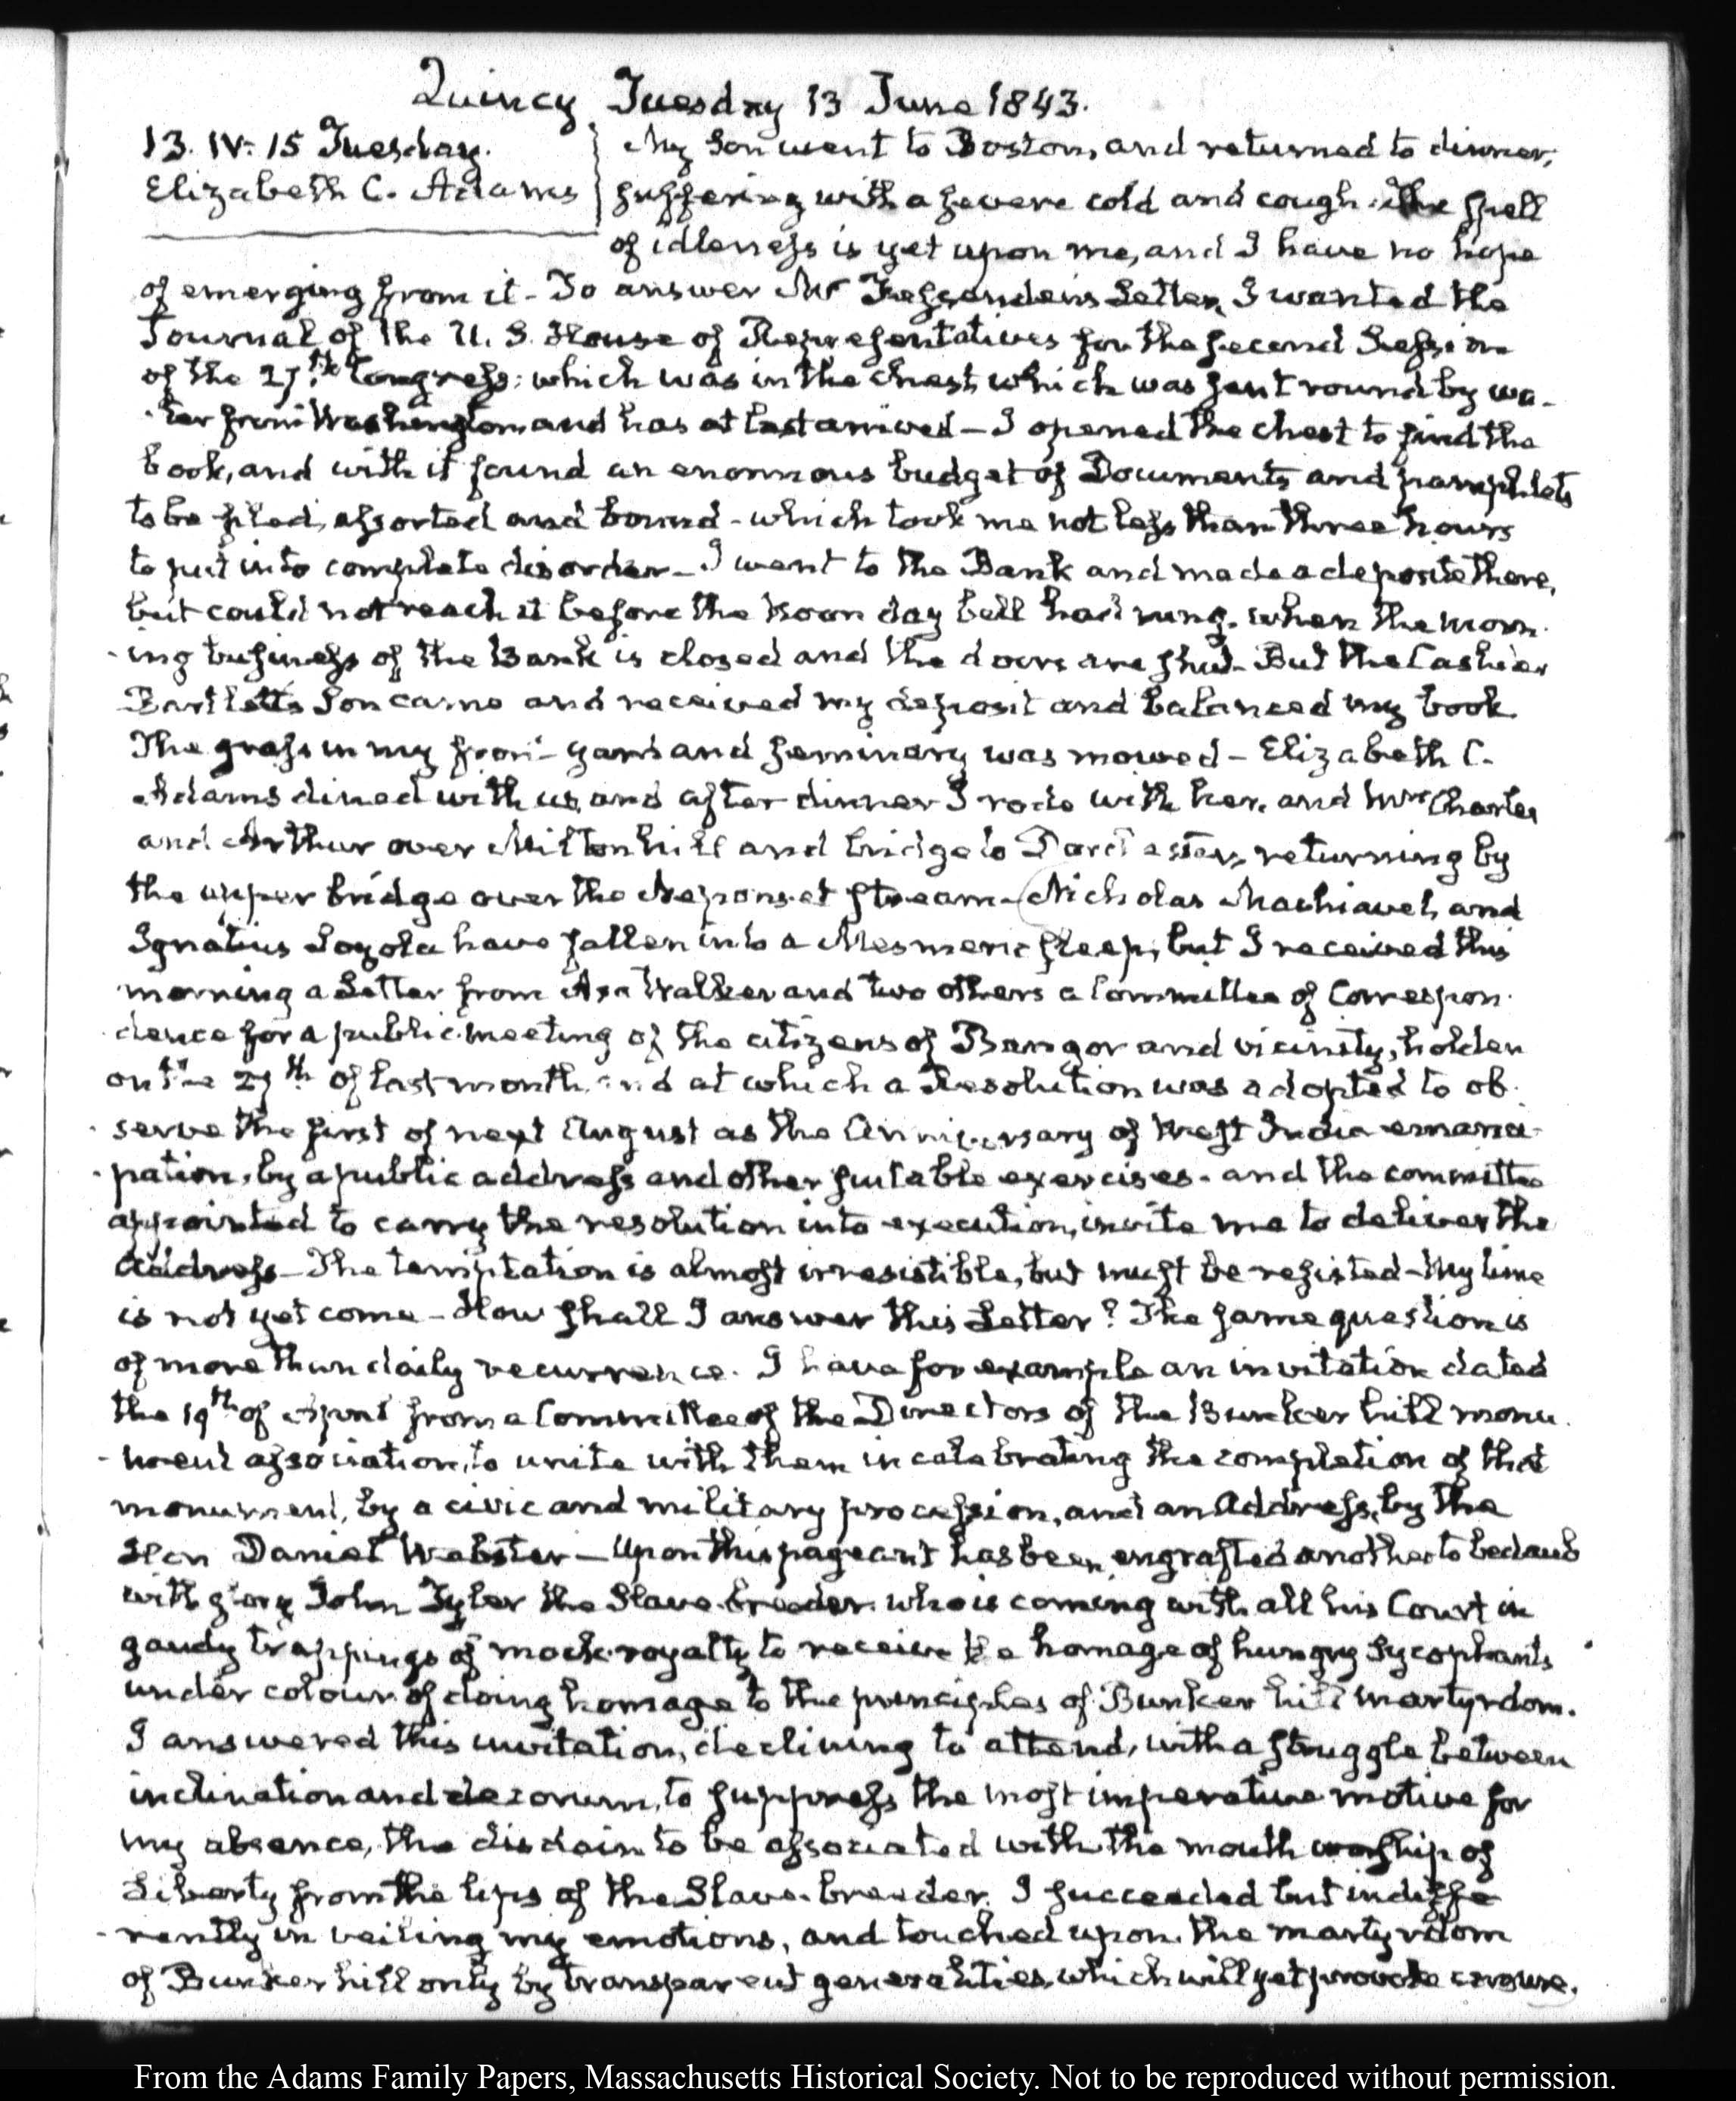 Quincy Tuesday 13 June 1843.
13. IV:15 Tuesday.
Elizabeth C. Adams
My Son went to Boston, and returned to dinner,
suffering with a severe cold and cough. The spell
of idleness is yet upon me, and I have no hope
of emerging from it - To answer Mr Fessenden's Letter, I wanted the
Journal of the U. S. House of Representatives for the second Session
of the 27th Congress: which was in the chest, which was sent round by wa-
-ter from Washington and has at last arrived - I opened the chest to find the
book, and with it found an enormous budget of Documents and pamphlets
to be filed, assorted and bound - which took me not less than three hours
to put into complete disorder - I went to the Bank and made a deposite there,
but could not reach it before the Noon day bell had rung. when the morn-
-ing business of the Bank is closed and the doors are shut - But the Cashier
Bartlett's Son came and received my deposit and balanced my book
The grass in my front-yard and seminary was mowed - Elizabeth C.
Adams dined with us, and after dinner I rode with her, and Mrs Charles
and Arthur over Milton hill and bridge to Dorchester, returning by
the upper bridge over the Neponset stream - Nicholas Machiavel, and
Ignatius Loyola have fallen into a Mesmeric sleep, but I received this
morning a Letter from Asa Walker and two others a Committee of Correspon-
-dence for a public meeting of the citizens of Bangor and vicinity, holden
on the 27th of last month and at which a Resolution was adopted to ob-
-serve the first of next August as the Anniversary of West India emanci-
-pation, by a public address and other suitable exercises - and the committee
appointed to carry the resolution into execution, invite me to deliver the
Address - The temptation is almost irresistible, but must be resisted - My time
is not yet come - How shall I answer this Letter? The same question is
of more than daily recurrence. I have for example an invitation dated
the 19th of April from a Committee of the Directors of the Bunker hill monu-
-ment association, to unite with them in celebrating the completion of that
monument, by a civic and military procession, and an Address, by the
Hon Daniel Webster - Upon this pageant has been engrafted another to bedaub
with glory John Tyler the Slave-breeder. who is coming with all his Court in
gaudy trappings of mock-royalty to receive the homage of hungry Sycophants
under colour of doing homage to the principles of Bunker hill martyrdom.
I answered this invitation, declining to attend, with a struggle between
inclination and decorum, to suppress the most imperative motive for
my absence, the disdain to be associated with the mouth worship of
Liberty from the lips of the Slave-breeder. I succeeded but indiffe-
-rently in veiling my emotions, and touched upon the martyrdom
of Bunker hill only by transparent generalities, which will yet provoke censure.
From the Adams Family Papers, Massachusetts Historical Society. Not to be reproduced without permission.